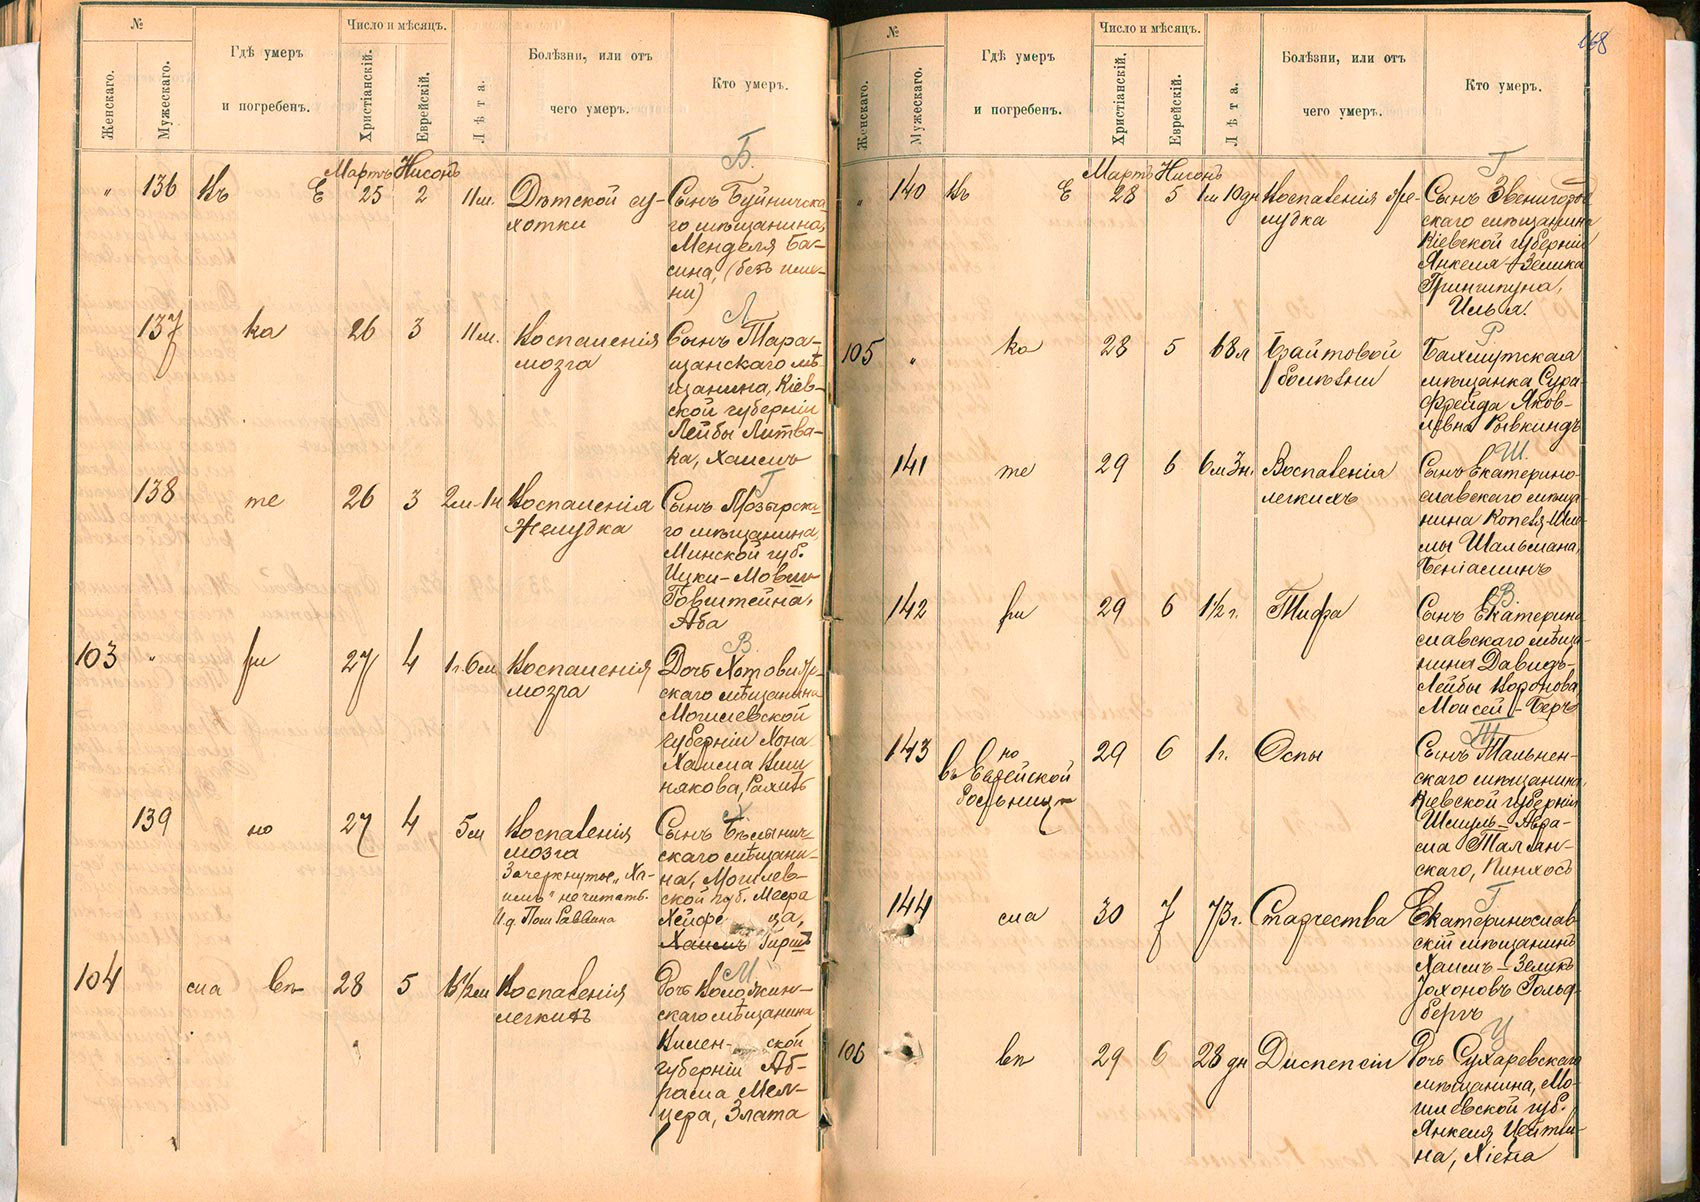 №
Женскаго.
Мужескаго.
Гдѣ умеръ
и погребенъ.
Число и мѣсяцъ.
Христіанскій.
Еврейскій.
Лѣта.
Болѣзни, или отъ
чего умеръ.
Кто умеръ.
Б.
Мартъ Нисонъ
" 136 Въ Е 25 2 11м. Дѣтской су-
хотки
Сынъ Буйничска
го мѣщанина
Менделя Ба-
сина, (безъ име-
ни)
Л
137 ка 26 3 11м. Воспаленія
мозга
Сынъ Тара-
щанскаго мѣ
щанина, Кіев-
ской губерніи
Лейбы Литва-
ка, Хаимъ
Г
138 те 26 3 2м. 1н Воспаленія
Желудка
Сынъ Мозырска-
го мѣщанина,
Минской губ.
Ицки-Мовши
Говштейна,
Аба
В.
103 " ри 27 4 1г. 6м Воспаленія
мозга
Дочь Хотовиж-
скаго мѣщанина
Могилевской
губерніи Хона
Хаима Виш
някова, Рахиль
Х
139 но 27 4 5м Воспаленія
мозга
Зачеркнутые „Ха-
имъ" не читать.
И д. Пом Раввина
Сынъ Бѣлынич
скаго мѣщани-
на, Могилев-
ской губ. Меера
Хейфе ца,
Хаимъ Гиршъ
М
104 сла вп 28 5 1½м Воспаленія
легкихъ
Дочь Воложин-
скаго мѣщанина
Вилен- ской
губерніи Аб-
рама Мел-
цера, Злата
№
Женскаго.
Мужескаго.
Гдѣ умеръ
и погребенъ.
Число и мѣсяцъ.
Христіанскій.
Еврейскій.
Лѣта.
Болѣзни, или отъ
чего умеръ.
Кто умеръ.
168
Г
Мартъ Нисонъ
" 140 Въ Е 28 5 1м 10дн Воспаленія же-
лудка
Сынъ Звенигород
скаго мѣщанина
Кіевской губерніи
Янкеля-Зелика
Гринципуна,
Илья.
Р.
105 " ка 28 5 68л Брайтовой
болѣзни
Бахмутская
мѣщанка Сура-
Фрейда Яков-
левна Рывкиндъ
Ш.
141 те 29 6 6м 3н. Воспаленія
легкихъ
Сынъ Екатерино-
славскаго мѣща-
нина Копеля-Шли-
мы Шальмана,
Беніаминъ
В.
142 ри 29 6 1½ г. Тифа
Сынъ Екатерино
славскаго мѣща-
нина Давидъ-
Лейбы Воронова,
Моисей-Беръ
Т
143 но 29 6 1г. Оспы
въ Еврейской
больницѣ
Сынъ Тальнен-
скаго мѣщанина,
Кіевской губерніи
Шмуль-Авра-
ма Талян-
скаго, Пинхосъ
Г.
144 сла 30 7 73г. Старчества
Екатеринослав
скій мѣщанинъ
Хаимъ-Зеликъ
Іохоновъ Гольд-
бергъ
Ц
106 вп 29 6 28 дн Диспепсіи
Дочь Сухаревскаго
мѣщанина, Мо-
гилевской губ.
Янкеля Цейтли-
на, Хіена